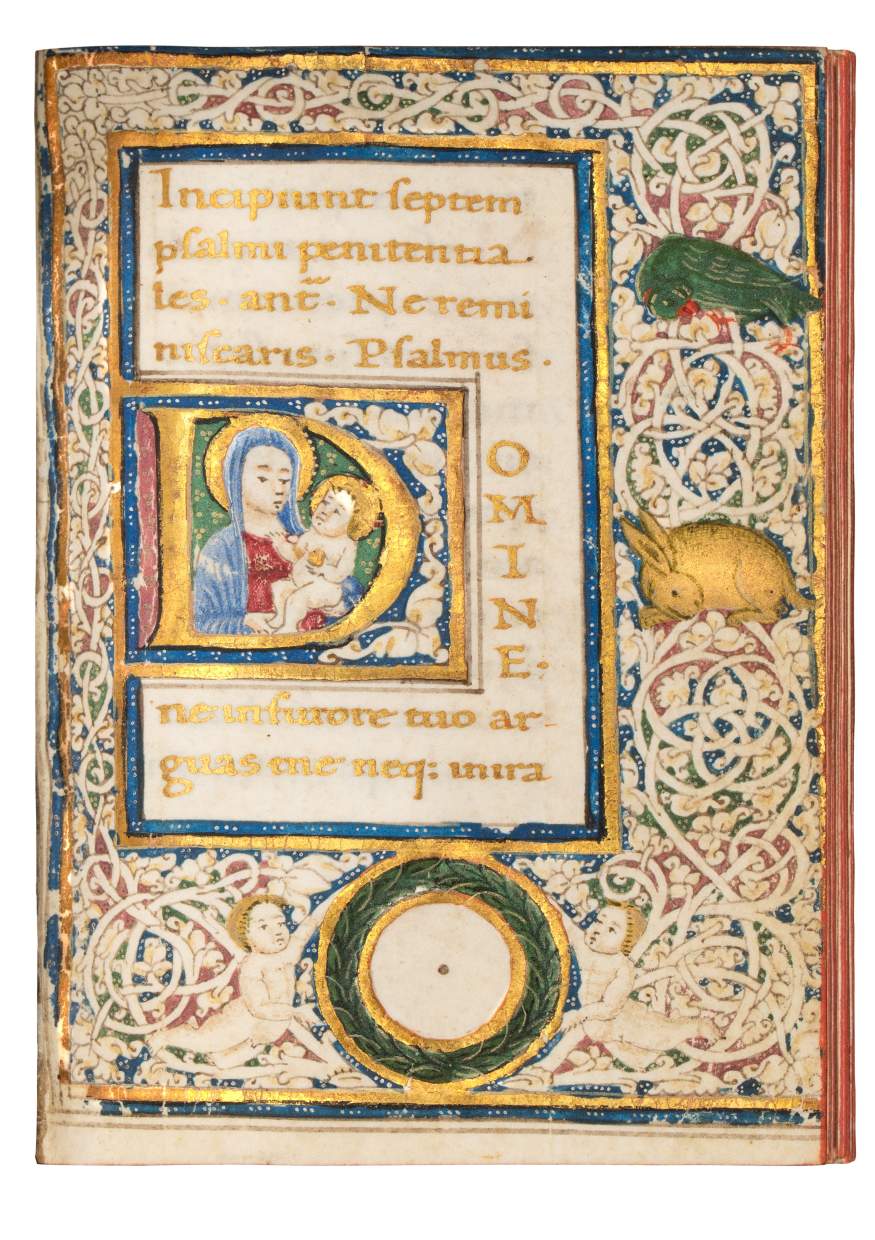 Incipiunt septem
psalmi penitentia
les · ant̃ · Ne remi
niscaris · Psalmus ·
DOMINE ·
ne in furore tuo ar-
guas me neq: in ira